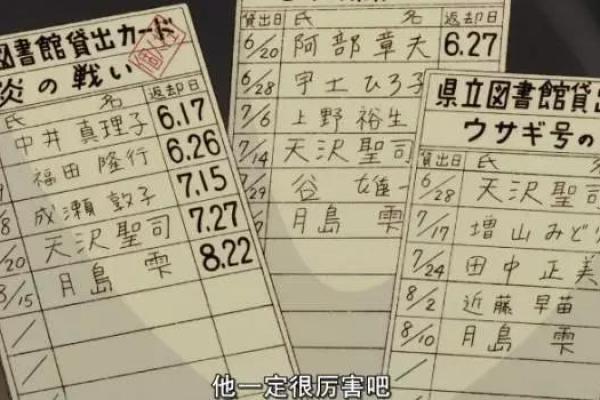 図書館貸出カード
炎の戦い
氏 名 返却日
中井 真理子 6.17
福田 隆行 6.26
8 成瀬 敦子 7.15
/20 天沢聖司 7.27
8/15 月島 雫 8.22
氏 名 返却日
6/20 阿部章夫 6.27
6/28 宇土ひろ子
7/6 上野 裕生
7/14 天沢聖司
/29 谷 雄一
月島 雫
県立図書館貸出
ウサギ号の
貸出日 氏
6/28 天沢聖司
7/17 増山みど
7/24 田中正美
8/2 近藤 早苗
8/10 月島 雫
他一定很厉害吧